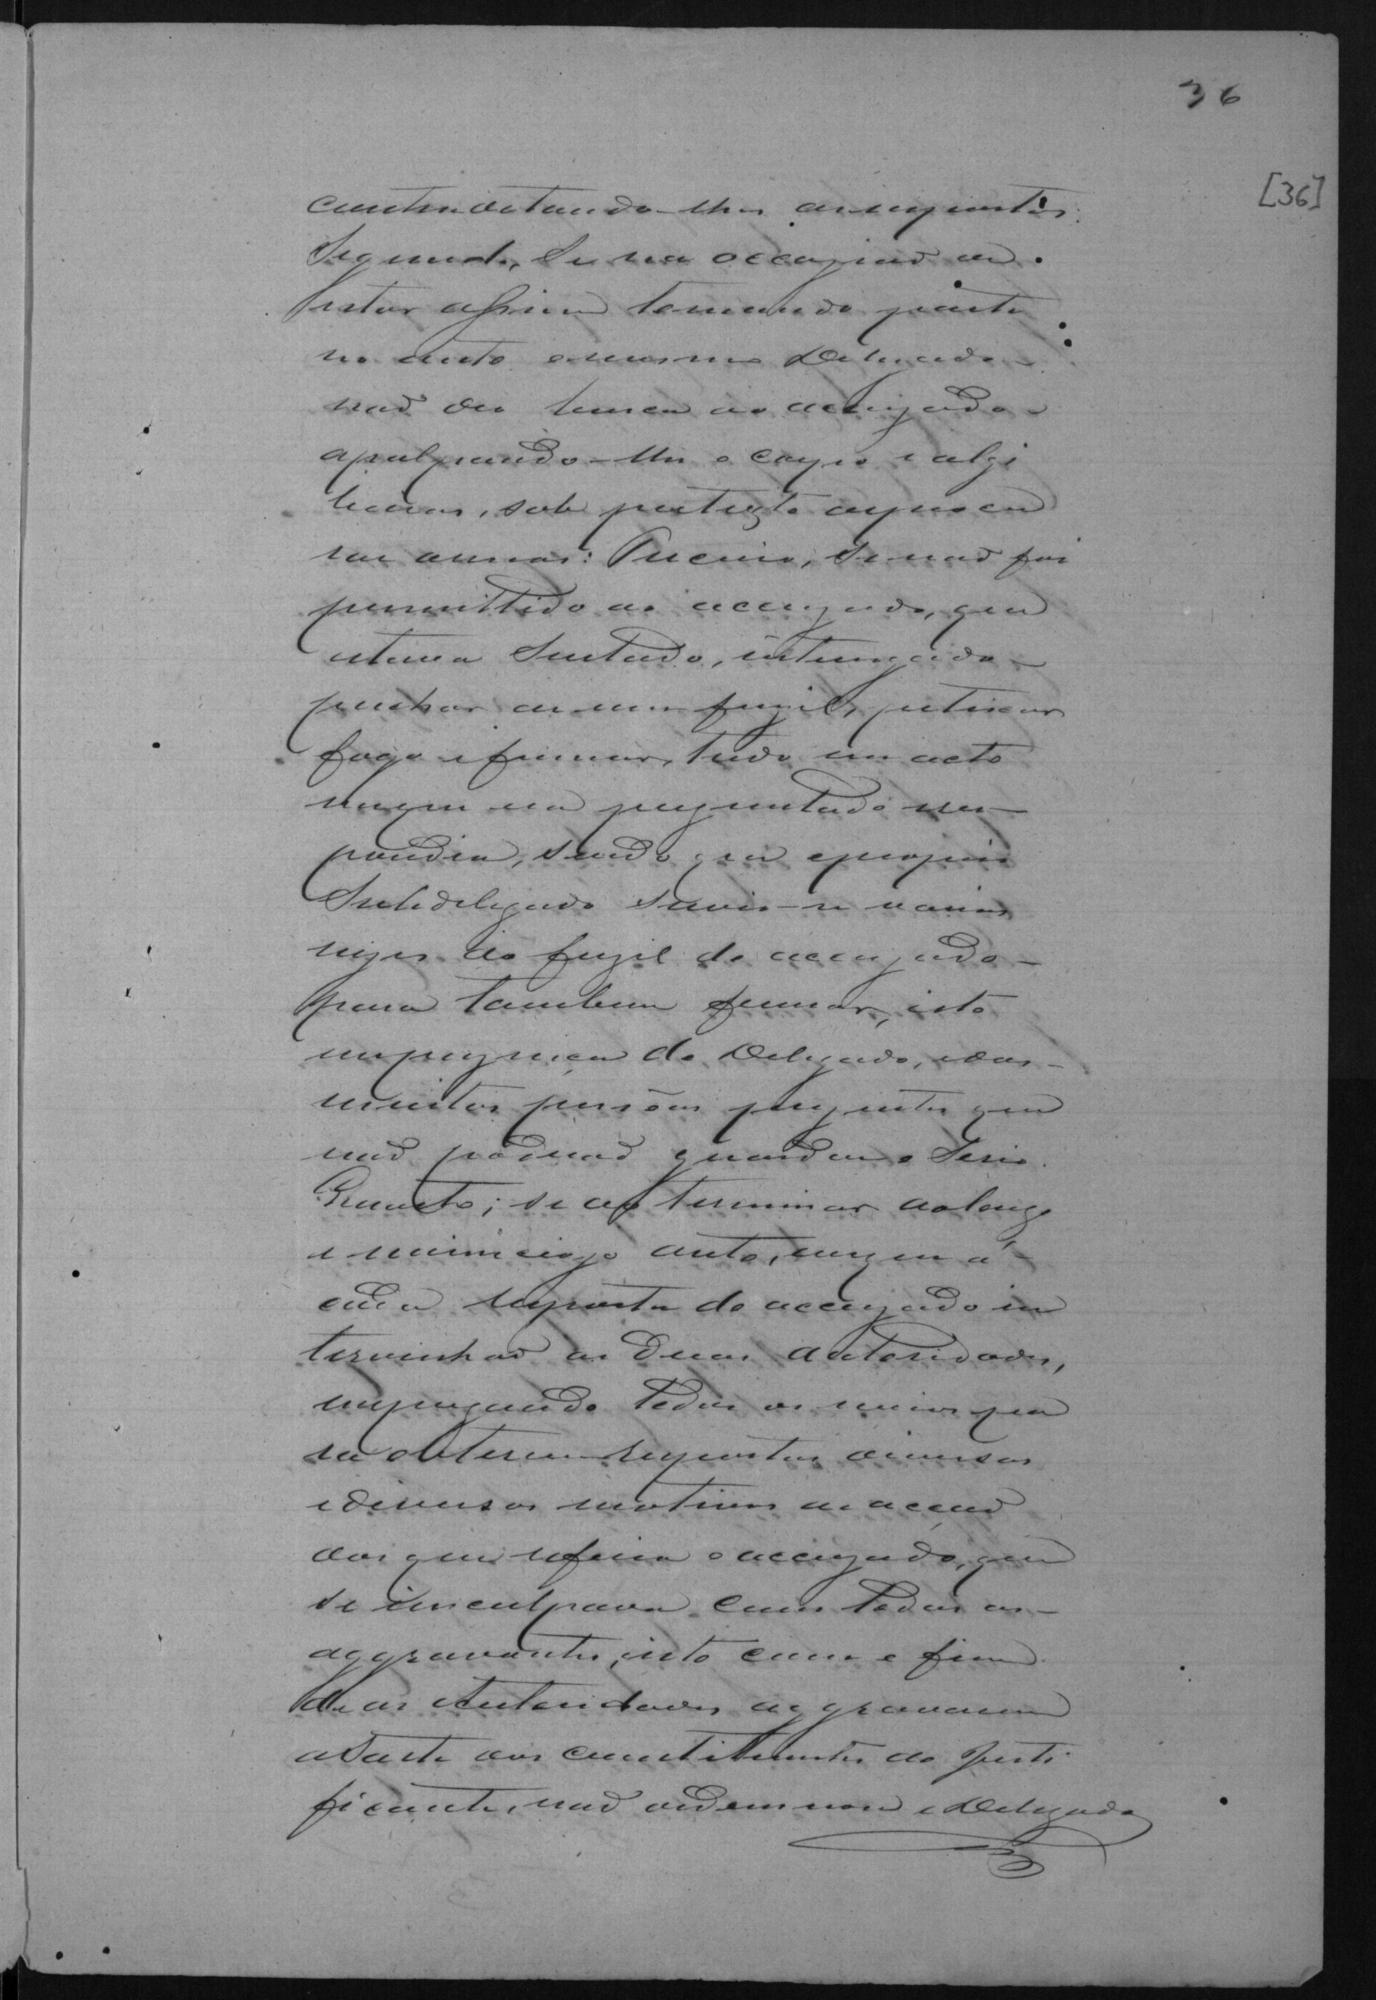 36
[36]
contra dictando-lhes as respostas:
Segundo, se na occazião de
estar assim tomando parte
no auto o mesmo Delegado
não deo busca ao accuzado
apalpando-lhe o corpo e algi
beiras, sob pretexto de procu
rar armas: Terceiro, se não foi
permittido ao accuzado, que
estava sentado, interrogado
puchar de um fuzil, petiscar
fogo e fumar, tudo em acto
em que era perguntado e res-
pondia, sendo que o proprio
Subdelegado servio-se varias
vezes do fuzil do accuzado
para tambem fumar, isto
em prezença do Delegado, e das
muitas pessôas prezentes que
não podião guardar o serio.
Quarto; se ao terminar do longo
e minucioso auto, em que a
cada resposta do accuzado in
tervinhão as duas autoridades,
empregando todos os meios pa
ra obterem respostas diversas
e diversos motivos de acção
dos que referia o accuzado, que
se inculpava com todas as
aggravantes, isto com o fim
de as Autoridades aggravarem
a sorte dos constituintes do Justi
ficante, não ordenara o Delegado